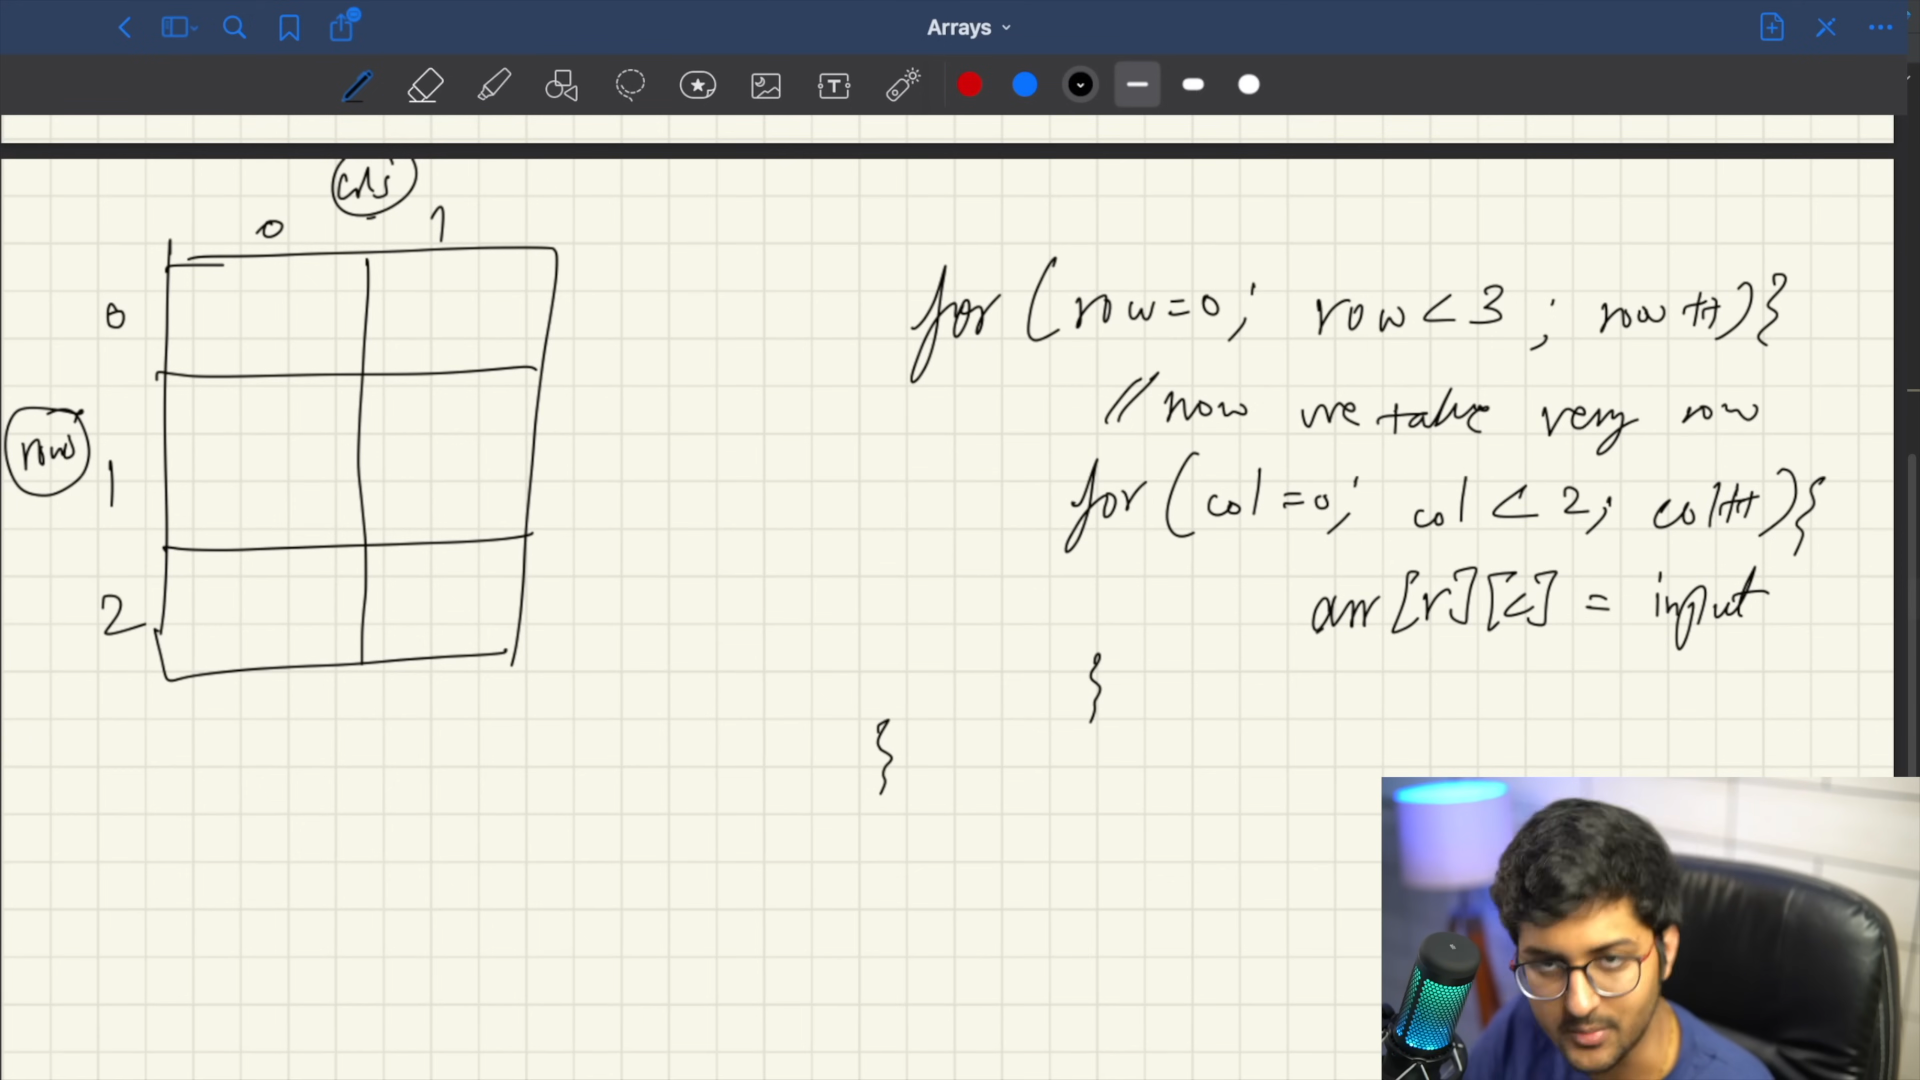 Arrays
cols
0 1
0
row
1
2
for (row=0; row<3; row++){
// now we take very row
for (col=0; col<2; col++){
arr[r][c] = input
}
}